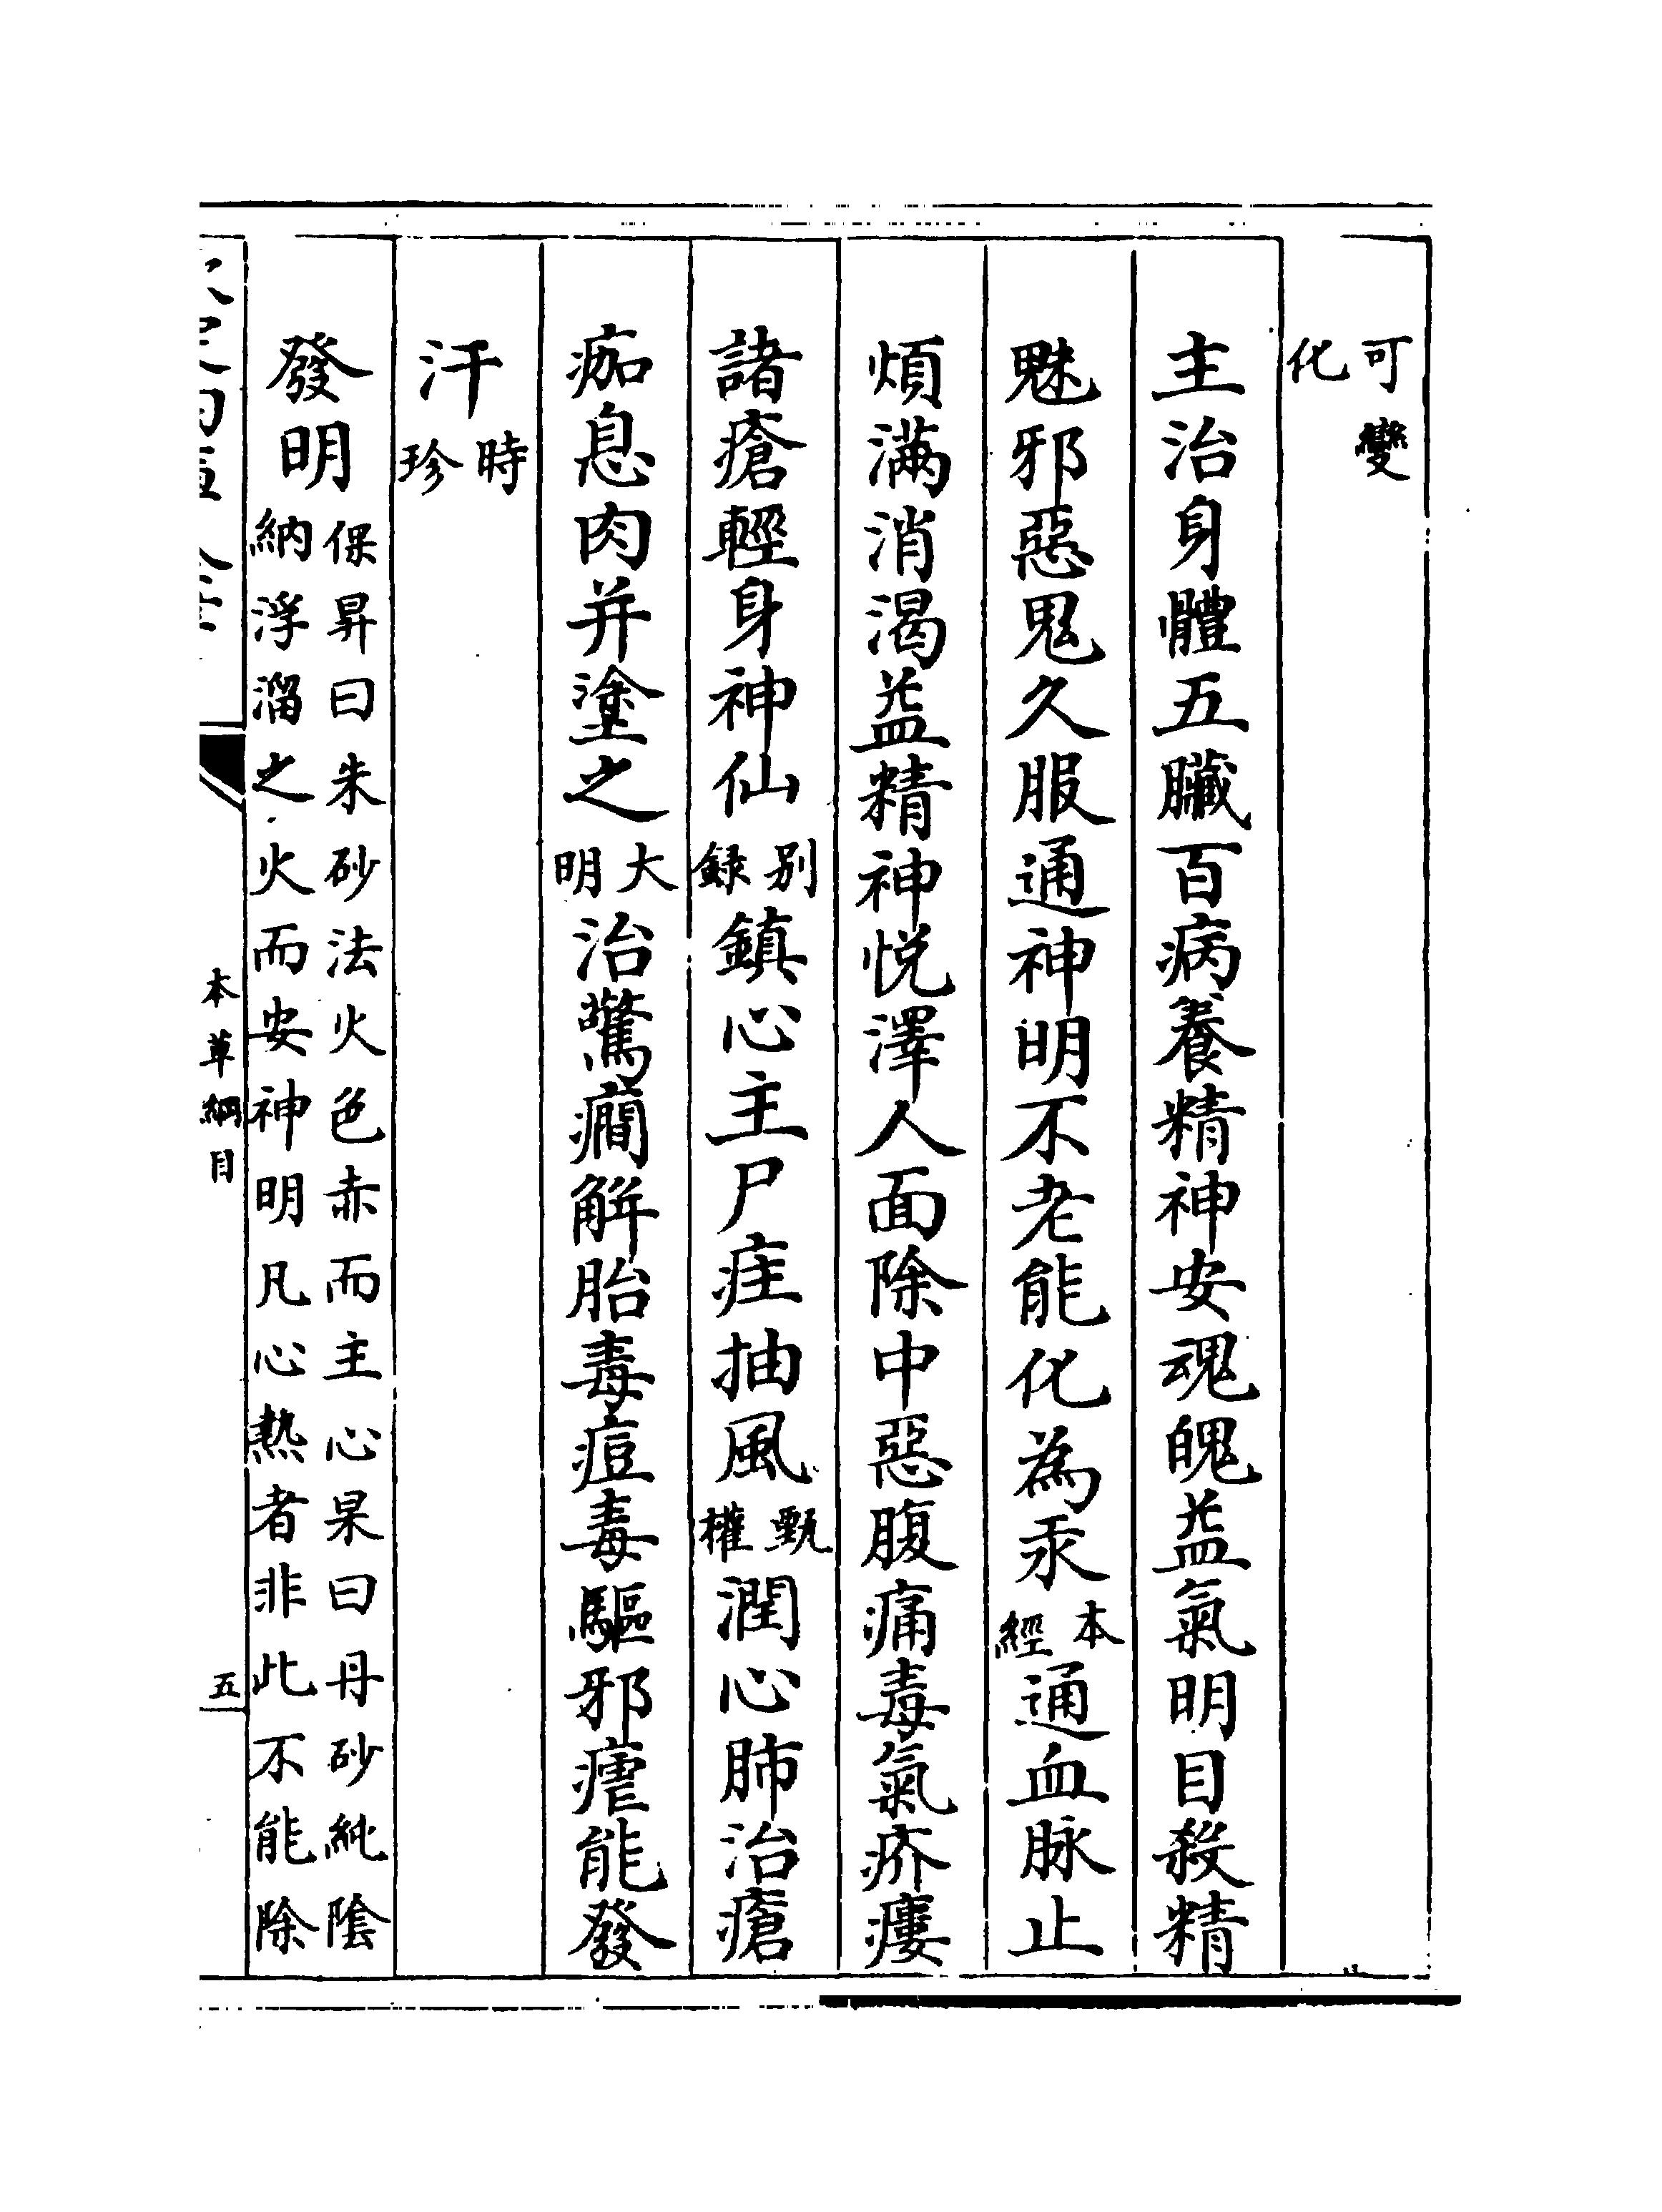 可變
化
主治身體五臟百病養精神安魂魄益氣明目殺精
魅邪惡鬼久服通神明不老能化為汞本經通血脉止
煩滿消渴益精神悦澤人面除中惡腹痛毒氣疥瘻
諸瘡輕身神仙别録鎮心主尸疰抽風甄權潤心肺治瘡
痂息肉并塗之大明治驚癇解胎毒痘毒驅邪瘧能發
汗時珍
發明保昇曰朱砂法火色赤而主心杲曰丹砂純陰
納浮溜之火而安神明凡心熱者非此不能除
本草綱目
五